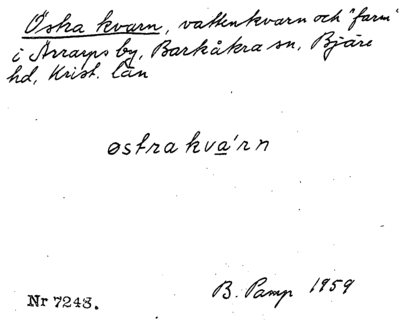 Öska kvarn, vattenkvarn och "farm"
i Arrarps by, Barkåkra sn, Bjäre
hd, Krist. län
østrakva´rn
B. Pamp 1959
Nr 7248.